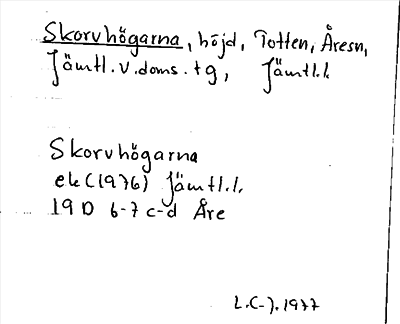 Skorvhögarna, höjd, Totten, Åresn,
Jämtl. v. doms. tg, Jämtl.l.
Skorvhögarna
ek (1976) Jämtl.l.
19 D 6-7 c-d Åre
L.C-J. 1977